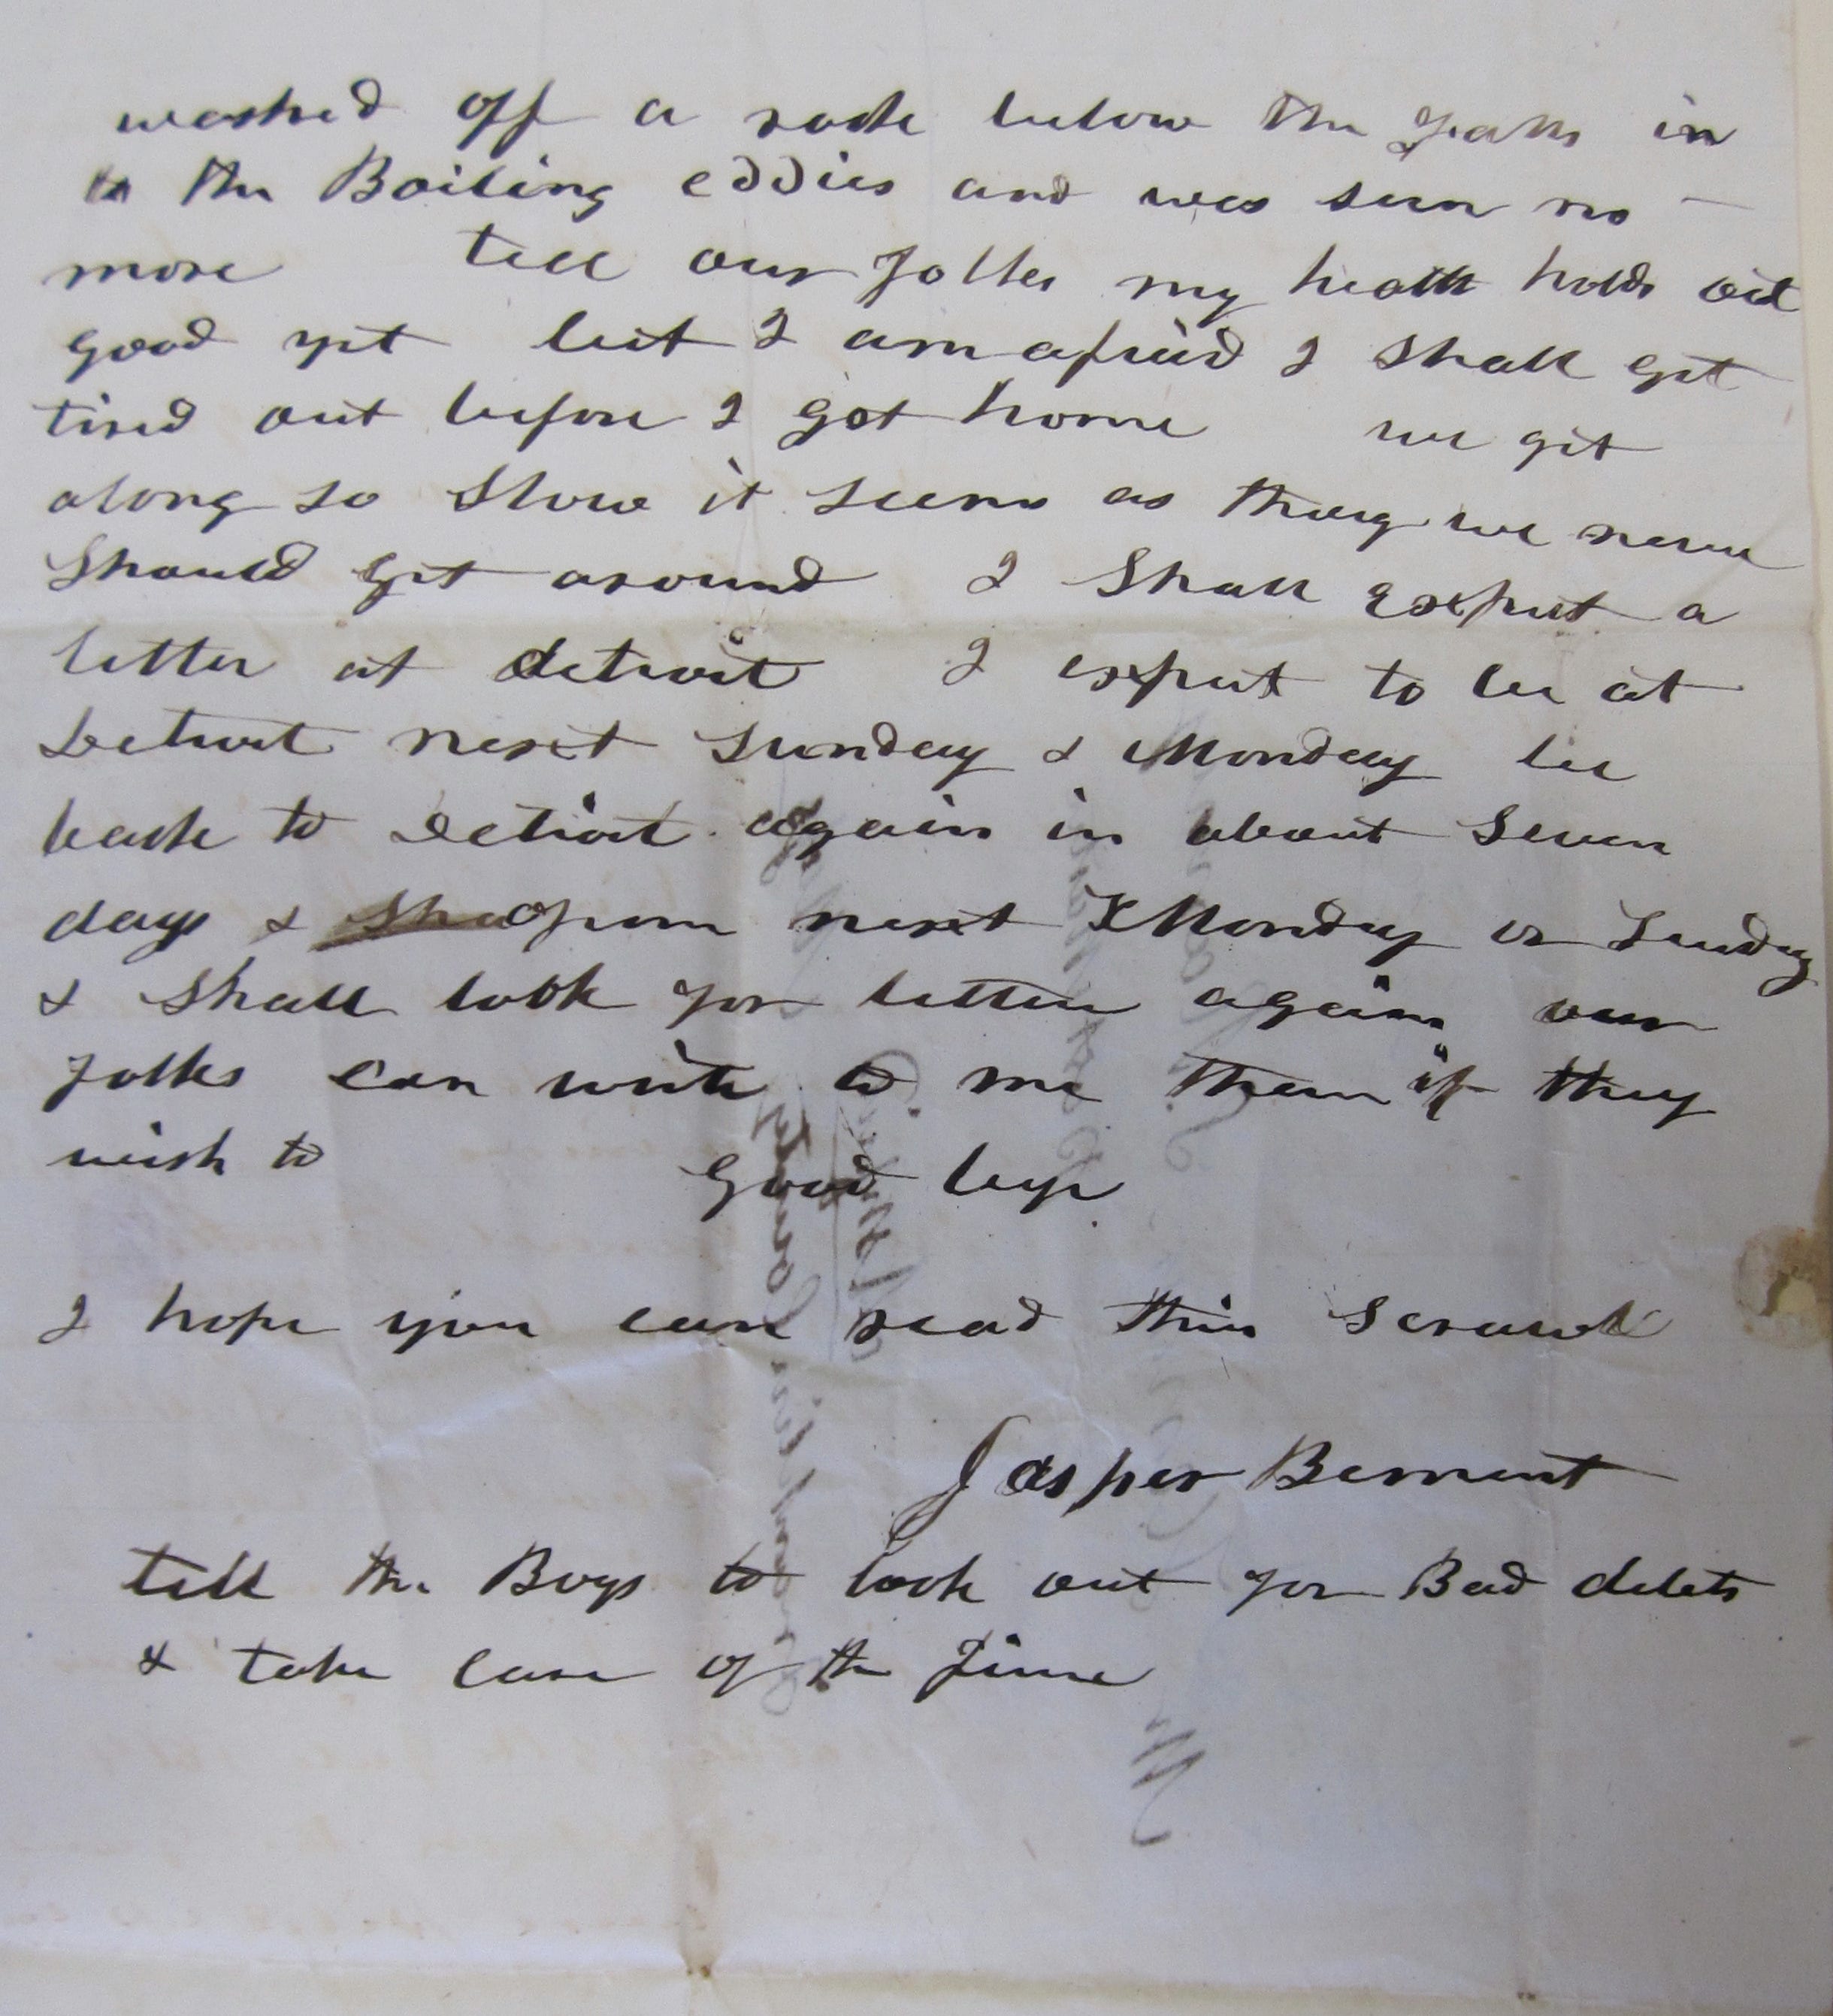 washed off a rock below the falls in
to the Boiling eddies and was seen no
more tell our folks my health holds out
good yet but I am afraid I shall get
tired out before I get home we git
along so slow it seems as thoug we never
should git around I shall expect a
letter at detroit I expect to be at
Detroit next Sunday & Monday be
back to Detroit again in about seven
days from next Monday or Sunday
& shall look for letters again our
folks can write to me them if they
wish to
Good bye
I hope you can read this scrawl
Jasper Bement
tell the Boys to look out for Bad debts
& take care of the